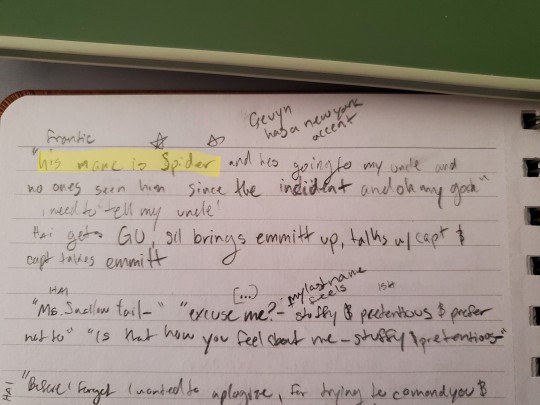 Gevyn
has a new york
accent
frantic
"his mame is Spider and hes going to my uncle and
no ones seen him since the incident and oh my gosh"
i need to tell my uncle'
Hai gets GU, sil brings emmitt up, talks w/ capt $
capt takes emmitt
HAI [...] my last name
feels ish
"Ms. Swallow tail-" "excuse me?- stuffy $ pretentious $ prefer
not to" "is that how you feel about me - stuffy $ pretentious-"
HAI "Before i forget i wanted to aplogise, for trying to comand you $